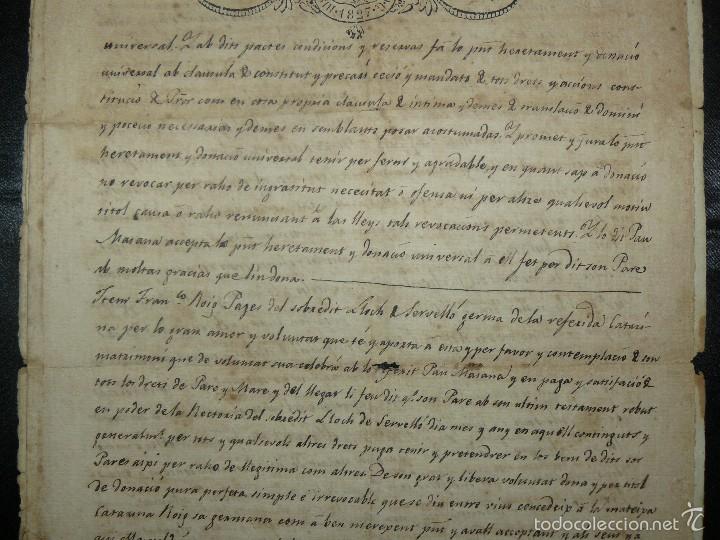 1827
universal. Y ab dits pactes condicions y reservas fa lo pnt heretament y donació
universal ab clausula de constitut y precari ceció y mandato de tots drets y accions cons-
titució de com en cosa propria clausula de intima y demes de translació de domini
y poceció necessarias y demes en semblants posar acostumadas. Y promet y jura lo pnt
heretament y donació universal tenir per ferm y agradable, y en quant sap á donació
no revocar per raho de ingratitut necesitat ó ofensa ni per altre qualsevol motiu
titol causa ó raho renunciant á las lleys tals revocacions permetents. Y lo dit Pau
Masana accepta lo pnt heretament y donació universal á ell fet per dit son Pare
ab moltas gracias que lin dona.
Item Fran.co Roig Pages del sobredit Lloch de Servelló germa de la referida Catari-
na per lo gran amor y voluntat que té y aporta á esta y per favor y contemplació de son
matrimoni que de voluntat sua celebra ab lo Pau Masana y en paga y satisfació de
tots los drets de Pare y Mare y del llegat li feu dit son Pare ab son ultim testament rebut
en poder de la Rectoria del sobredit Lloch de Servelló dia mes y any en aquell contingut y
generalm.t per tots y qualsevols altres drets puga tenir y pretendrer en los bens de dits sos
Pares aixi per raho de llegitima com altres. De son grat y libera voluntat dona y per titol
de donació pura perfeta simple é irrevocable que se diu entre vius concedeix á la mateixa
Catarina Roig sa germana com á ben mereixent pnt y avall acceptant y als seus ya
todocoleccion.net